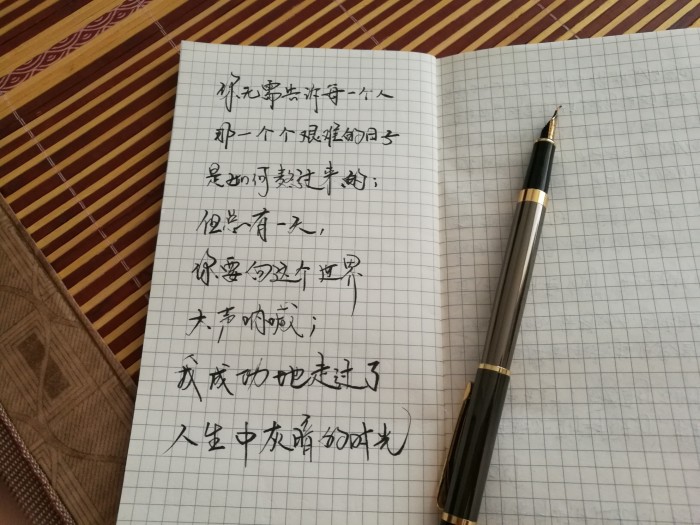 你无需告诉每一个人
那一个个艰难的日子
是如何熬过来的；
但总有一天，
你要向这个世界
大声呐喊；
我成功地走过了
人生中灰暗的时光